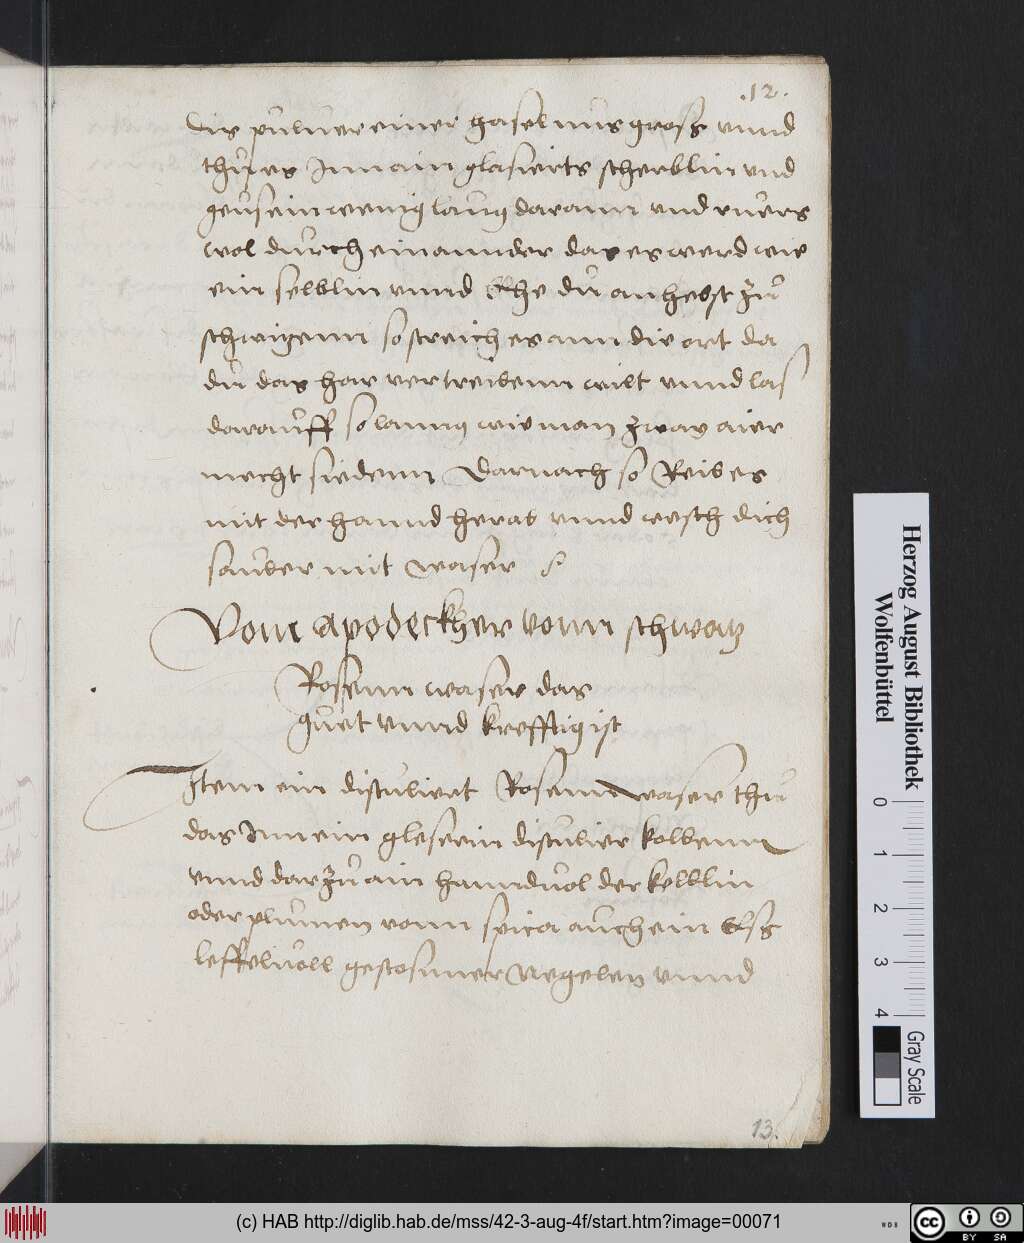 .12.
dis puluer einer haselnus gross vnnd
thu es Inn ain glasierts scherblin vnd
geus ein wenig laug darann vnd ruers
wol durch einannder das es werd wie
ein selblin vnnd Ehe du anhebst zu
schwizenn so streich es ann die ort da
du das har vertreibenn wilt vnnd las
darauff so lanng wie man zway aier
mecht siedenn Darnach so Reib es
mit der hannd herab vnnd wesch dich
sauber mit waser
Vom apodeckher vonn schwatz
Rosenn waser das
guet vnnd krefftig ist
Item ein distuliert Rosenn waser thu
das Inn ein glesern distulier kolbenn
vnnd darzu ain hanndvol der kelblin
oder plumen vonn spica auch ein Ess
leffelvoll gestosner Negelen vnnd
13.
Herzog August Bibliothek
Wolfenbüttel
0 1 2 3 4
Gray Scale
(c) HAB http://diglib.hab.de/mss/42-3-aug-4f/start.htm?image=00071
WDB
cc BY SA